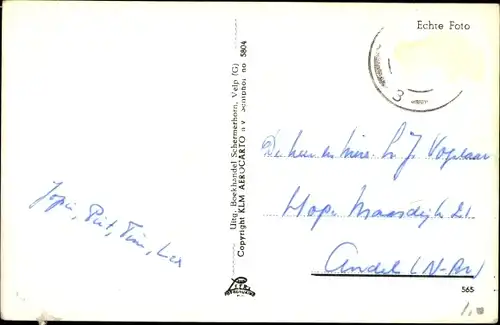 Echte Foto
3
Uitg. Boekhandel Schermerhorn, Velp (G)
Copyright KLM AEROCARTO n v Schiphol no 5804
Jopie, Piet, Tim, Lex
De heer en Mevr. L. J. Vogelaar
Hoge Maasdijk 21
Andel (N-Br)
565